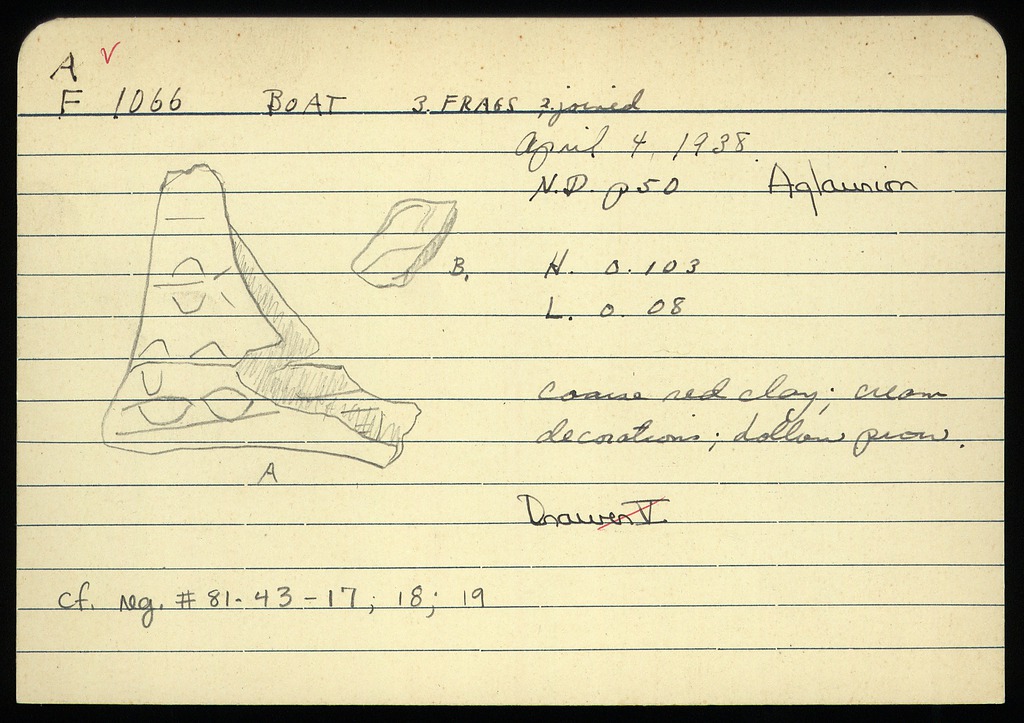 A ✓
F 1066 BOAT 3 FRAGS 2 joined
April 4, 1938
N.D. p50 Aglaurion
B.
H. 0.103
L. 0.08
coarse red clay; cream
decorations; hollow prow.
A
Drawer V
cf. reg. # 81-43-17; 18; 19